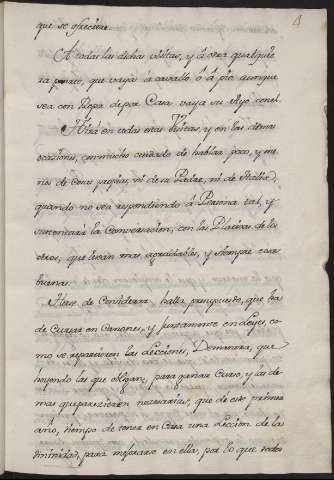 4
que se ofrecieren.
A todas las dichas visitas, y á otra qualquie
ra parte, que vaya á cavallo, ó á pie aunque
sea con Ropa de por Casa vaya su Ayo con el.
Yrá en todas mas Visitas, y en las demas
ocasiones, con mucho cuidado de hablar poco, y me
nos de Cosas propias, ni de su Padre, ni de
quando no sea respondiendo á Persona tal, y
la Conversacion, con las Platicas de los
otros, que serán mas agradables, y siempre sean
buenas.
Hase de Considerar, hasta presupuesto, que ha
de Cursar en Canones, y juntamente en Leyes, co
mo se repartiran las Lecciones, Demanera, que
hoyendo las que obligan, para ganar Curso, y las de
mas que parecieren necesarias, que de este primer
año, tiempo de tener en Casa una Leccion de la
para mejorarse en ella, por lo que todos